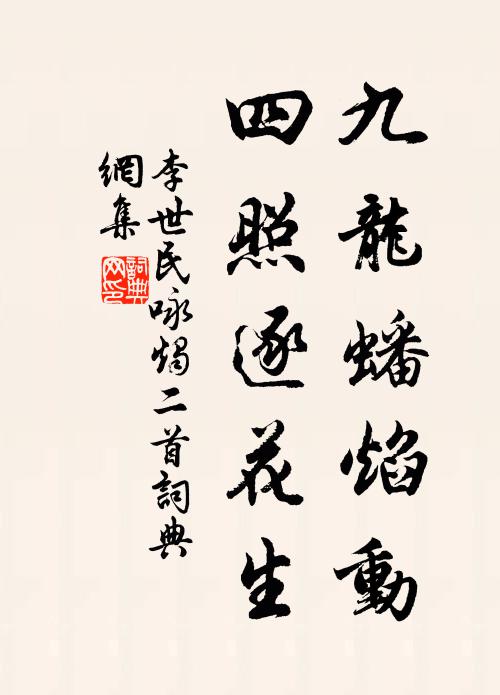 九龍蟠焰動
四照逐花生
李世民咏燭二首詞典
網集
詞典網印